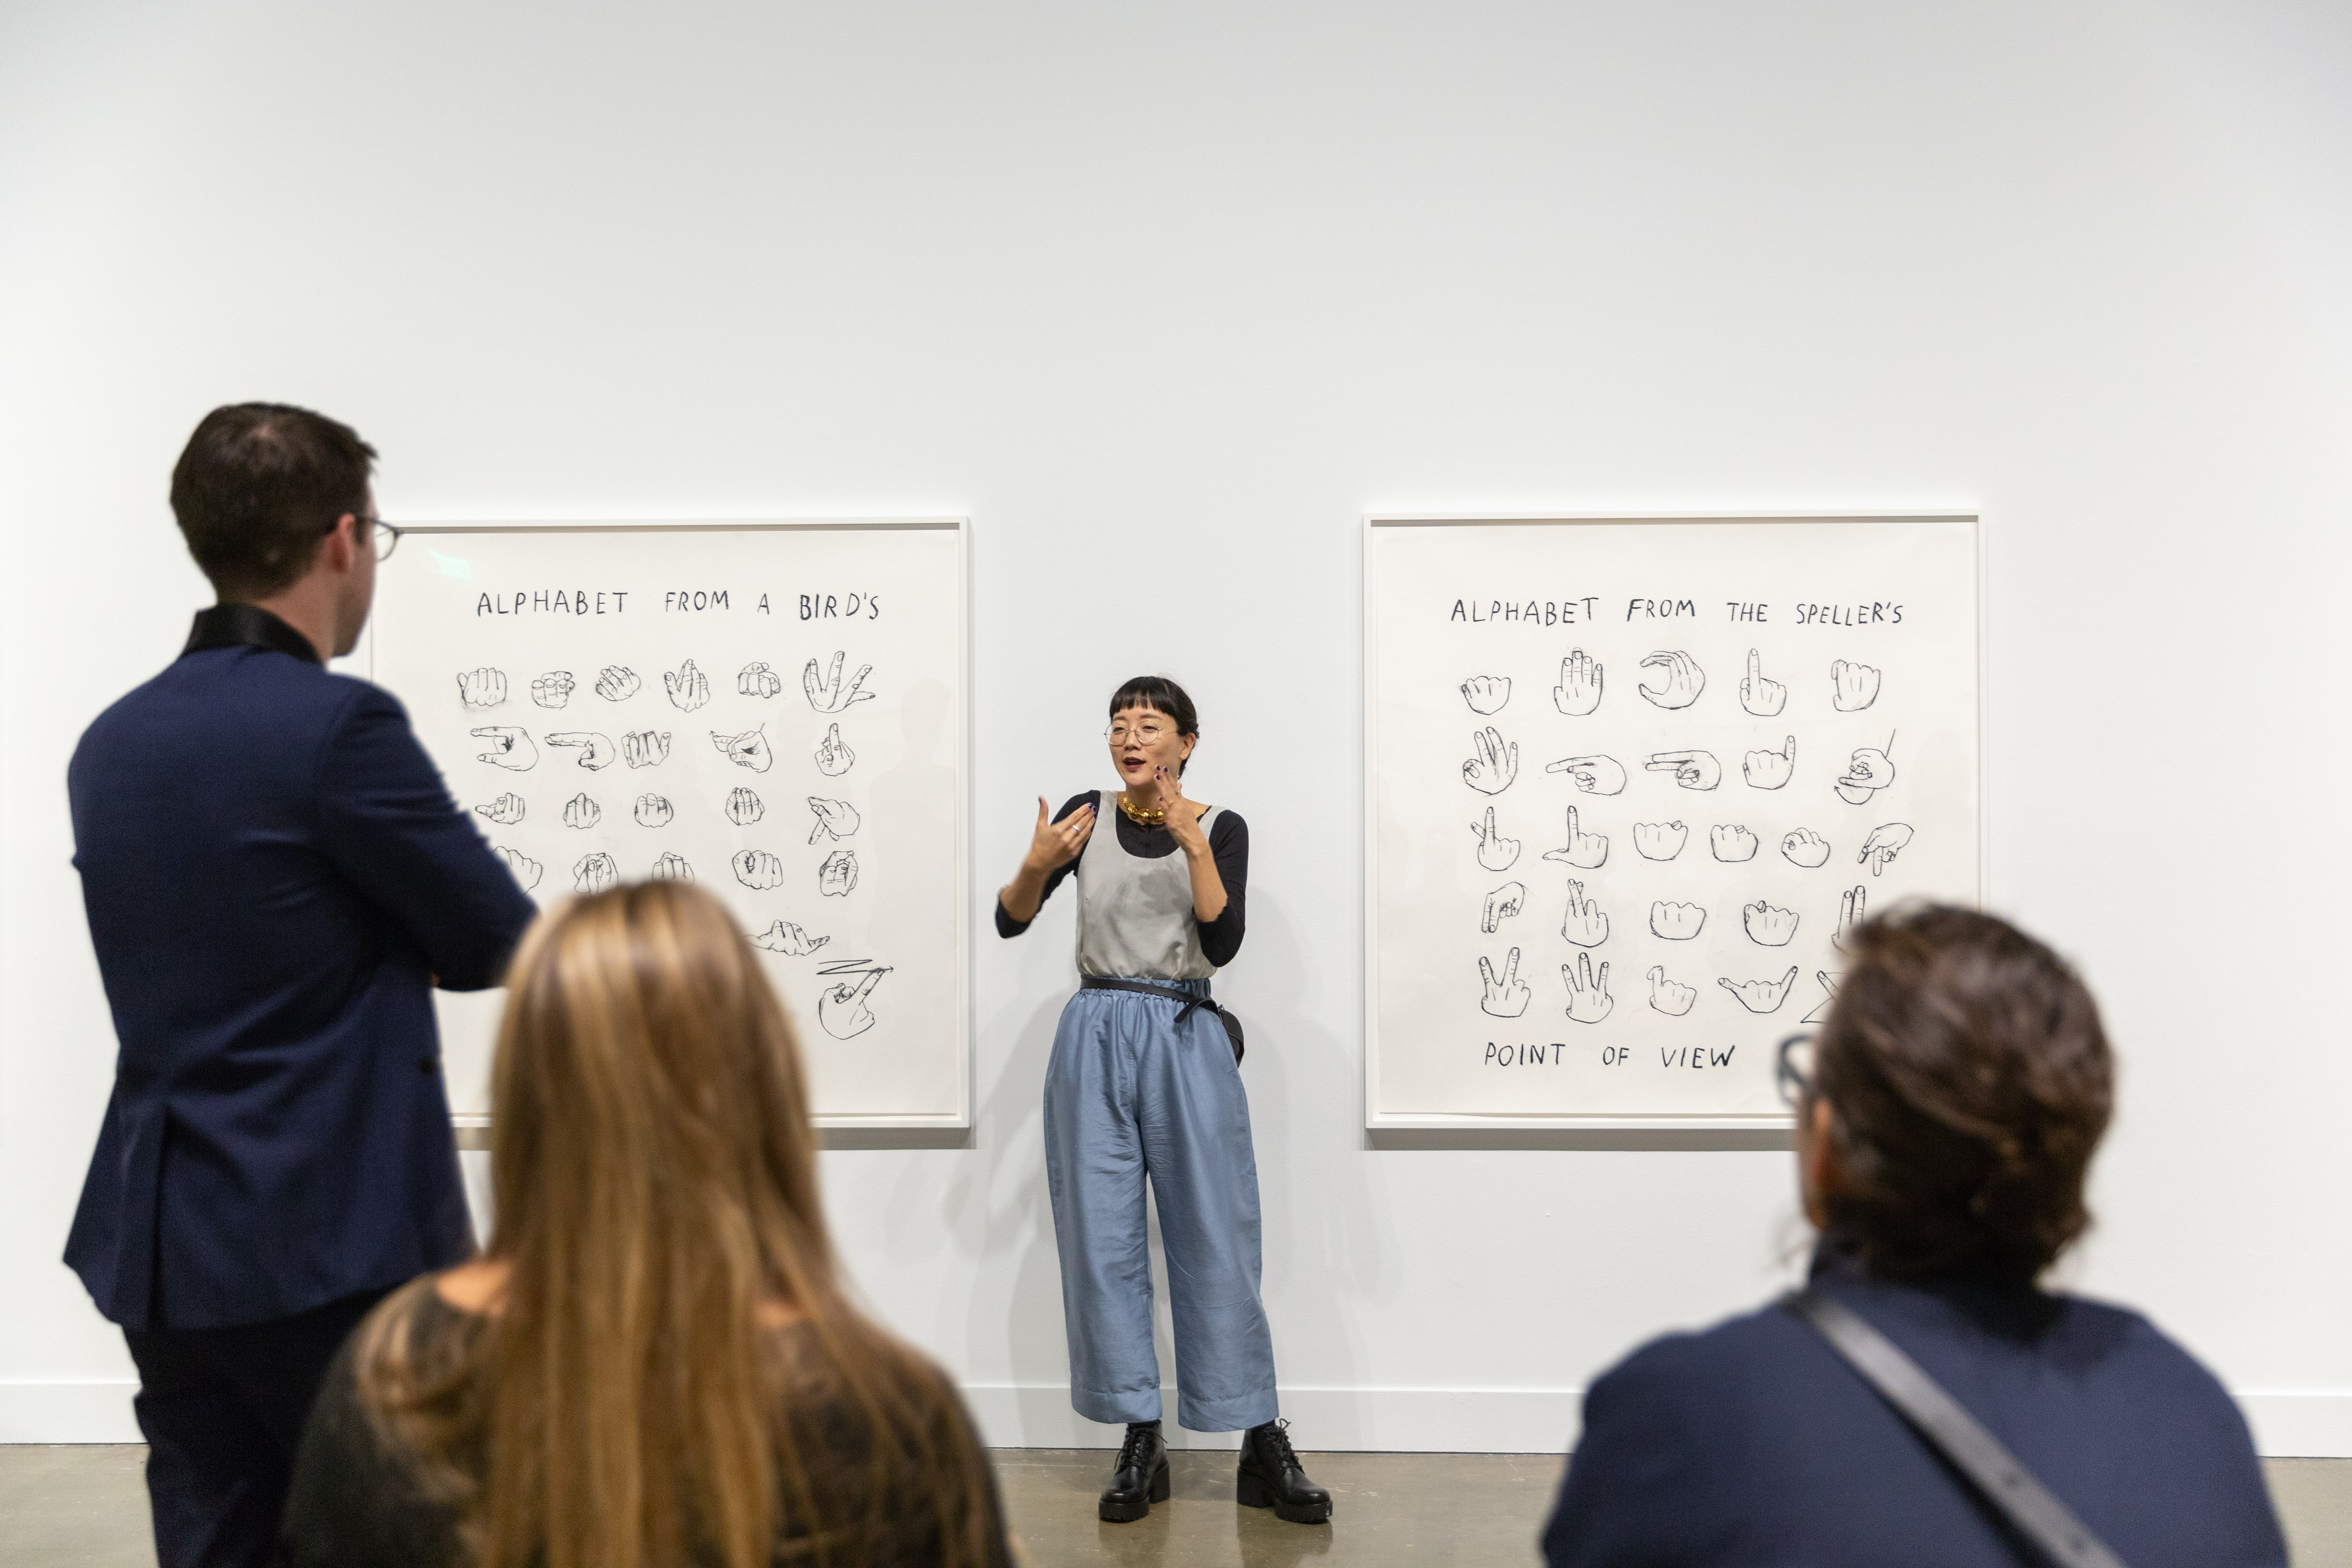 ALPHABET FROM A BIRD'S
ALPHABET FROM THE SPELLER'S
POINT OF VIEW